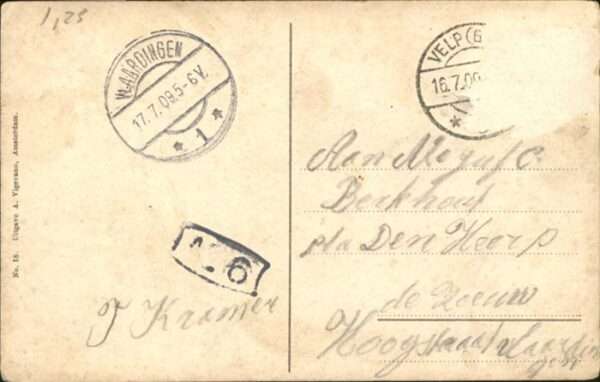 1,25
VLAARDINGEN
17.7.09.5-6V.
* 1 *
VELP (G
16.7.09
*
Aan Mejuf C.
Berkhout
p/a Den Heer P
de Zeeuw
Hoogstraat Vlaardin
gen
6
J Kramer
No. 18. Uitgave A. Vigevano, Amsterdam.